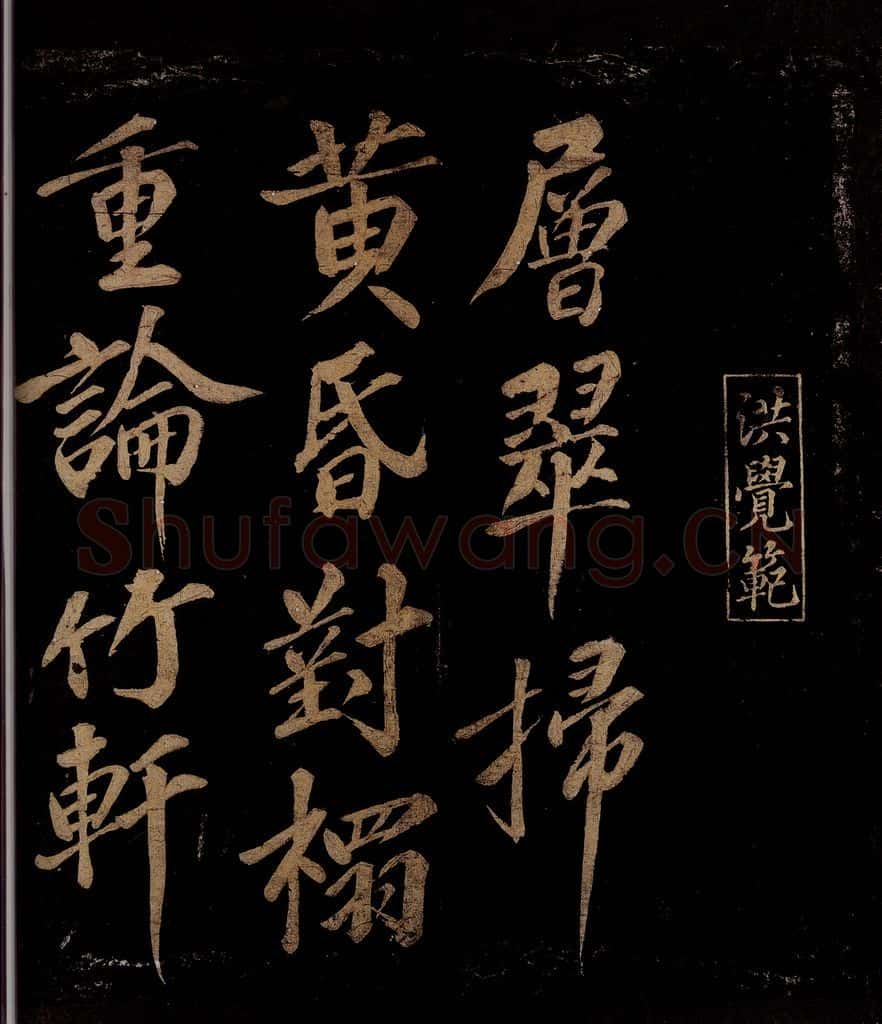 洪覺範
層翠掃
黄昏對榻
重論竹軒
Shufawang.CN